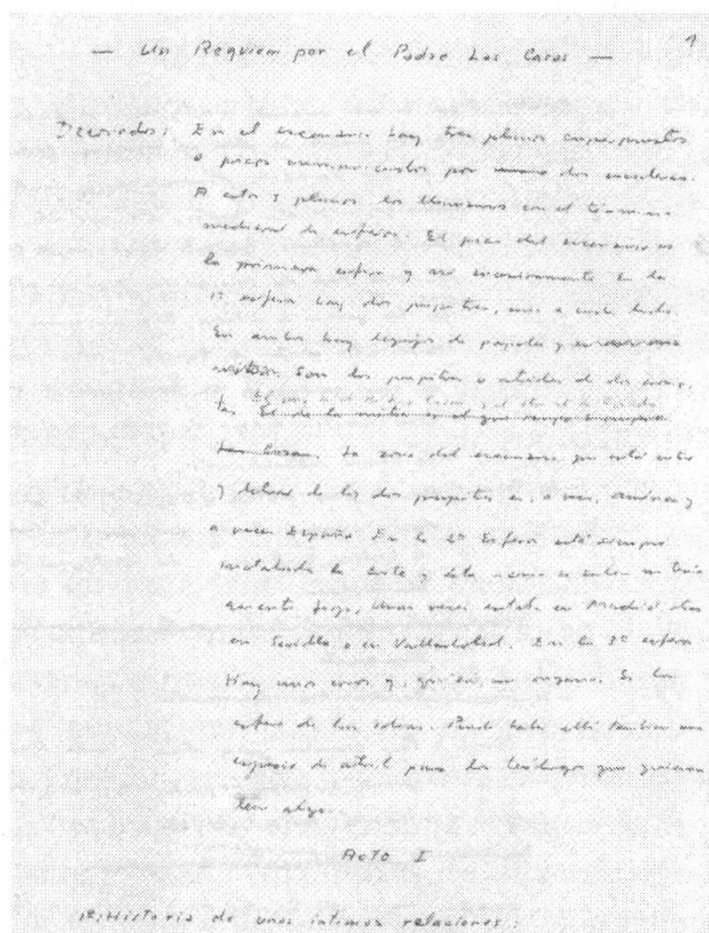 1
— Un Requiem por el Padre Las Casas —
Decorados: En el escenario hay tres planos superpuestos
o pisos comunicados por dos escaleras.
A estos 3 planos los llamamos con el término
medieval de esferas. El piso del escenario es
la primera esfera y así sucesivamente. En la
1ª esfera hay dos pupitres, uno a cada lado.
En ambos hay legajos de papeles y
Son dos pupitres o atriles de dos
El uno es el de Las Casas y el otro el de
La zona del escenario que está entre
y detrás de los dos pupitres es, a veces, América y
a veces España. En la 2ª Esfera está siempre
instalada la Corte y ésta
unas veces estaba en Madrid, otras
en Sevilla o en Valladolid. En la 3ª esfera
Hay unos coros y, quizás, un órgano. Es la
esfera de las ideas. Puede haber allí también una
especie de atril para los teólogos que quieran
leer algo.
Acto I
1ª: Historia de unas íntimas relaciones.